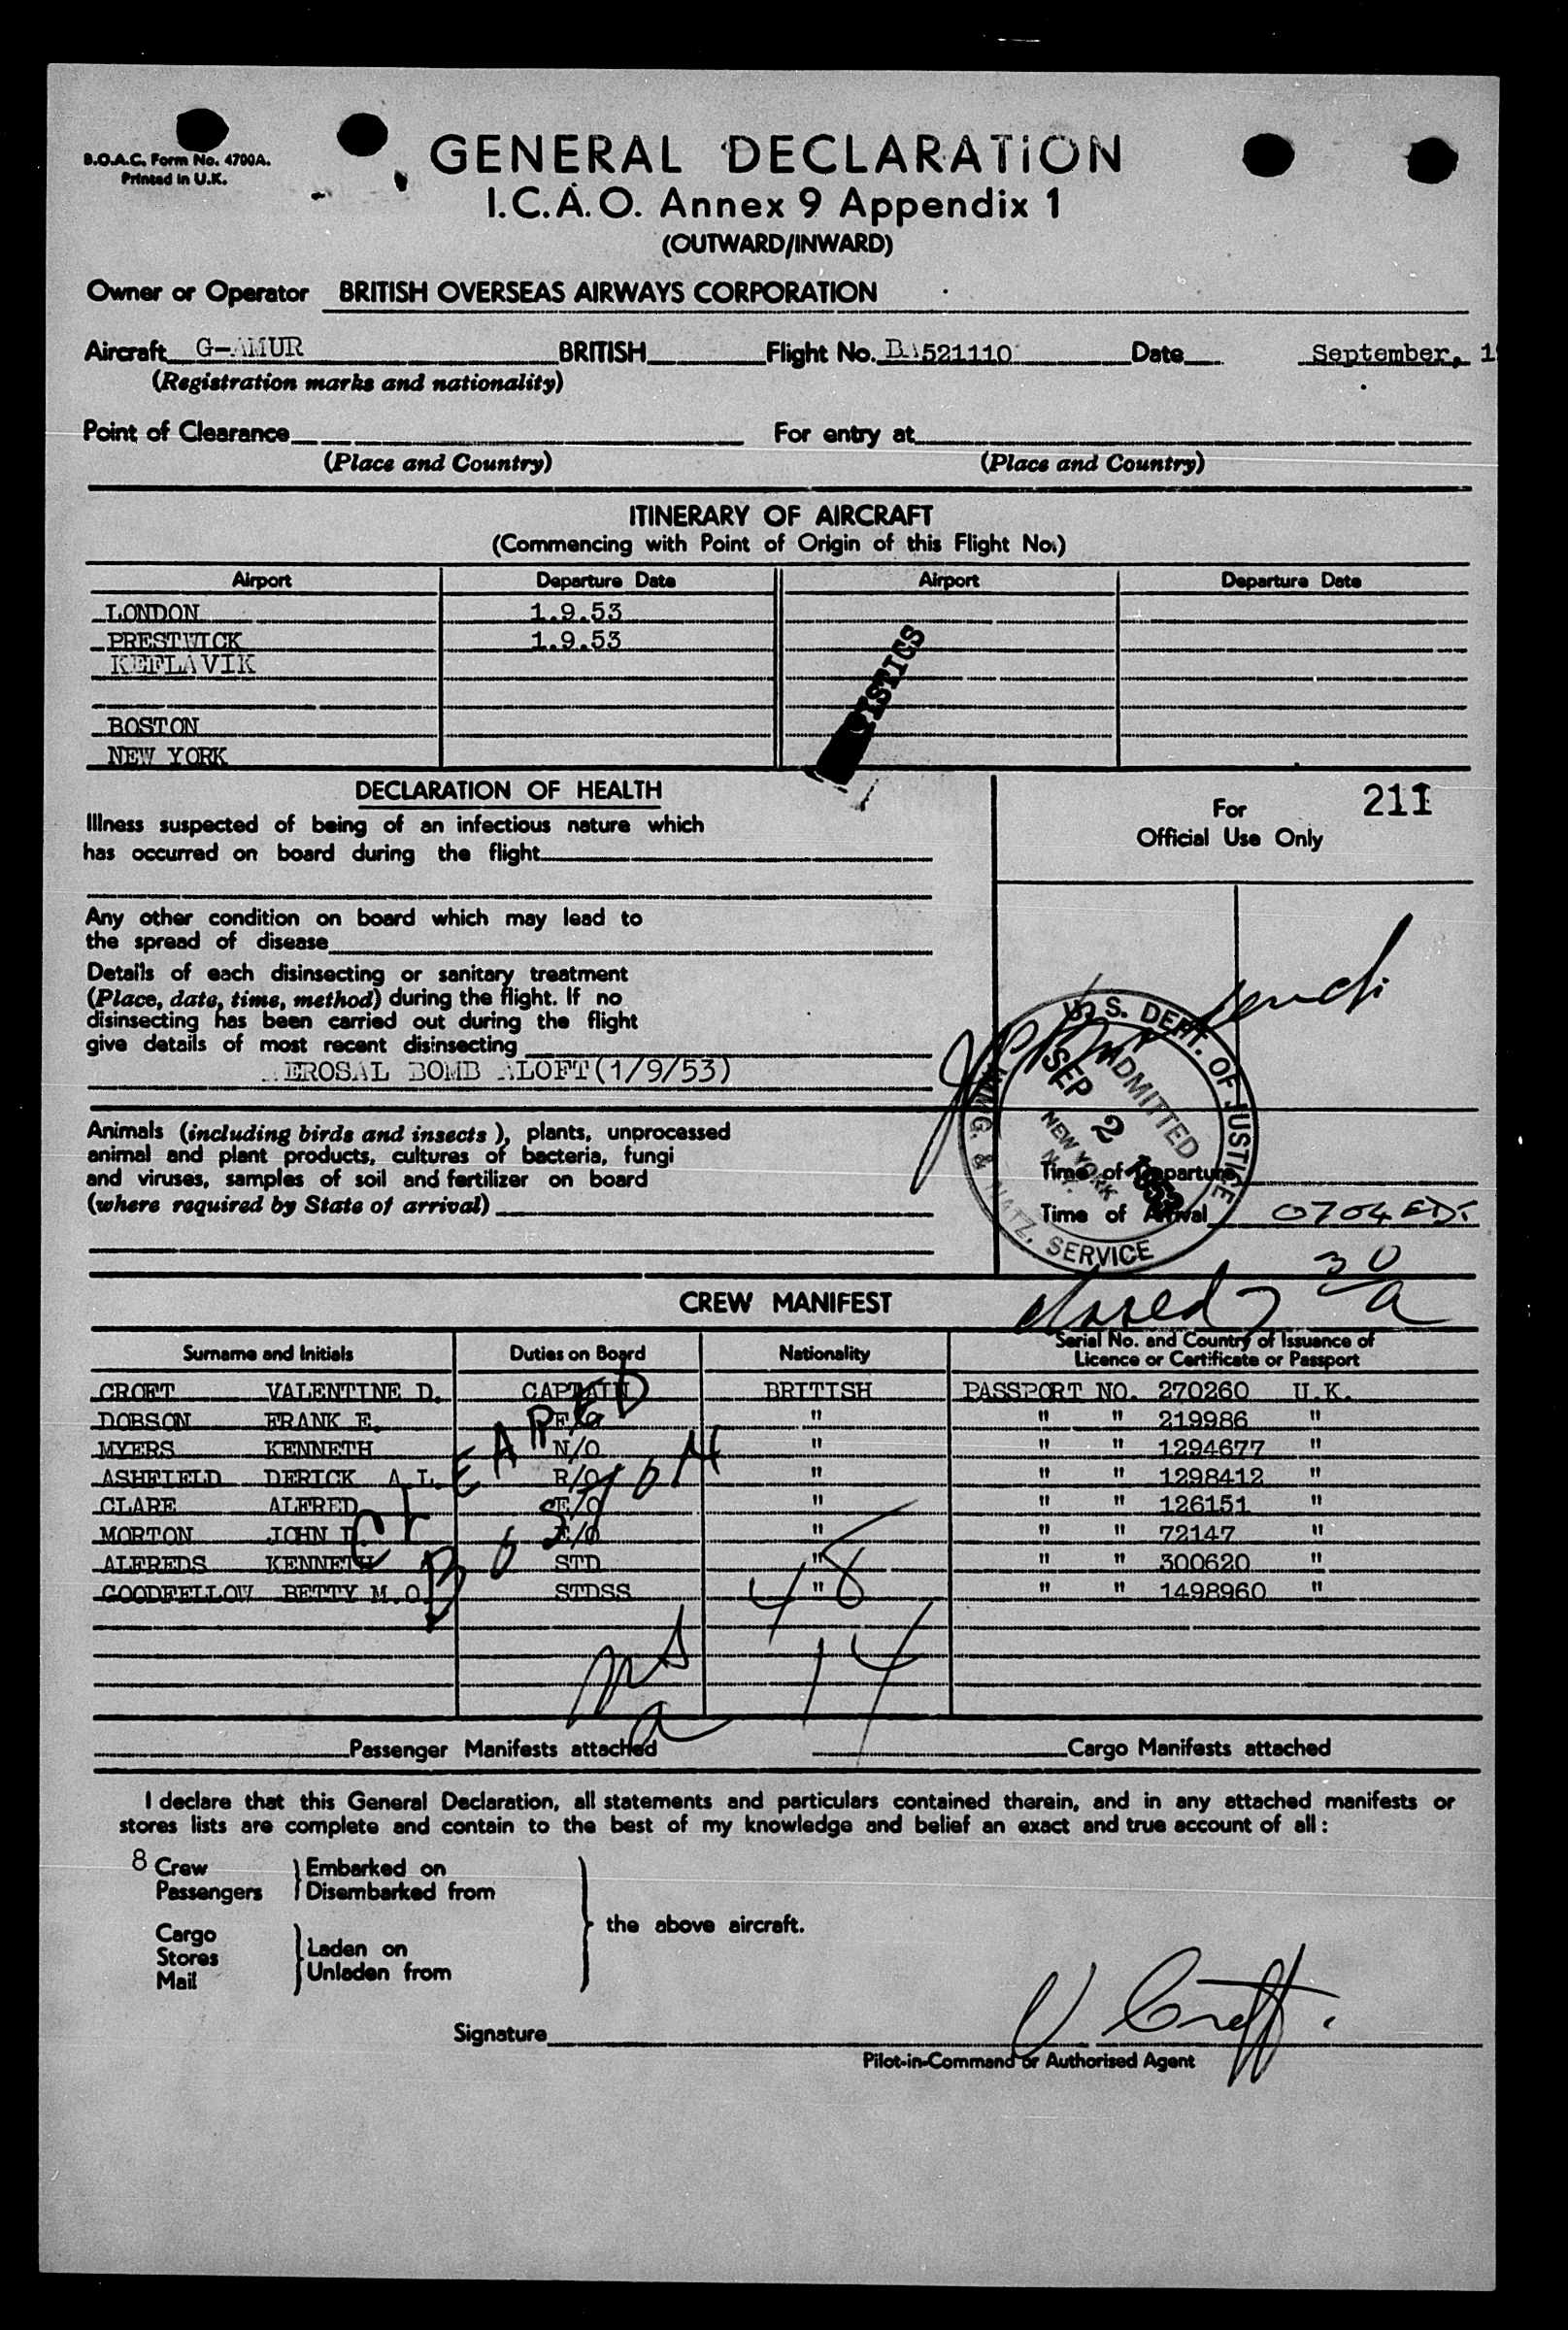 B.O.A.C. Form No. 4700A.
Printed in U.K.
GENERAL DECLARATION
I.C.A.O. Annex 9 Appendix 1
(OUTWARD/INWARD)
Owner or Operator BRITISH OVERSEAS AIRWAYS CORPORATION
Aircraft G-AMUR BRITISH Flight No. BA521110 Date September, 1
(Registration marks and nationality)
Point of Clearance For entry at
(Place and Country) (Place and Country)
ITINERARY OF AIRCRAFT
(Commencing with Point of Origin of this Flight No.)
Airport Departure Date Airport Departure Date
LONDON 1.9.53
PRESTWICK 1.9.53
KEFLAVIK
BOSTON
NEW YORK
DECLARATION OF HEALTH
Illness suspected of being of an infectious nature which
has occurred on board during the flight
Any other condition on board which may lead to
the spread of disease
Details of each disinsecting or sanitary treatment
(Place, date, time, method) during the flight. If no
disinsecting has been carried out during the flight
give details of most recent disinsecting
AEROSAL BOMB ALOFT(1/9/53)
Animals (including birds and insects), plants, unprocessed
animal and plant products, cultures of bacteria, fungi
and viruses, samples of soil and fertilizer on board
(where required by State of arrival)
For 211
Official Use Only
U.S. DEPT. OF JUSTICE
IMMIG. & NATZ. SERVICE
ADMITTED
SEP 2 1953
NEW YORK
N.Y.
Time of Departure
Time of Arrival 0704 EDT
30
closed a
CREW MANIFEST
Surname and Initials Duties on Board Nationality Serial No. and Country of Issuance of
Licence or Certificate or Passport
CROFT VALENTINE D. CAPTAIN BRITISH PASSPORT NO. 270260 U.K.
DOBSON FRANK E. F/O " " " 219986 "
MYERS KENNETH N/O " " " 1294677 "
ASHFIELD DERICK A.L. R/O " " " 1298412 "
CLARE ALFRED E/O " " " 126151 "
MORTON JOHN E/O " " " 72147 "
ALFREDS KENNETH STD " " " 300620 "
GOODFELLOW BETTY M.O. STDSS " " " 1498960 "
CLEARED
BOSTON
48
14
Passenger Manifests attached Cargo Manifests attached
I declare that this General Declaration, all statements and particulars contained therein, and in any attached manifests or
stores lists are complete and contain to the best of my knowledge and belief an exact and true account of all:
8 Crew Embarked on
Passengers Disembarked from
the above aircraft.
Cargo
Stores Laden on
Mail Unladen from
Signature V Croft.
Pilot-in-Command or Authorised Agent